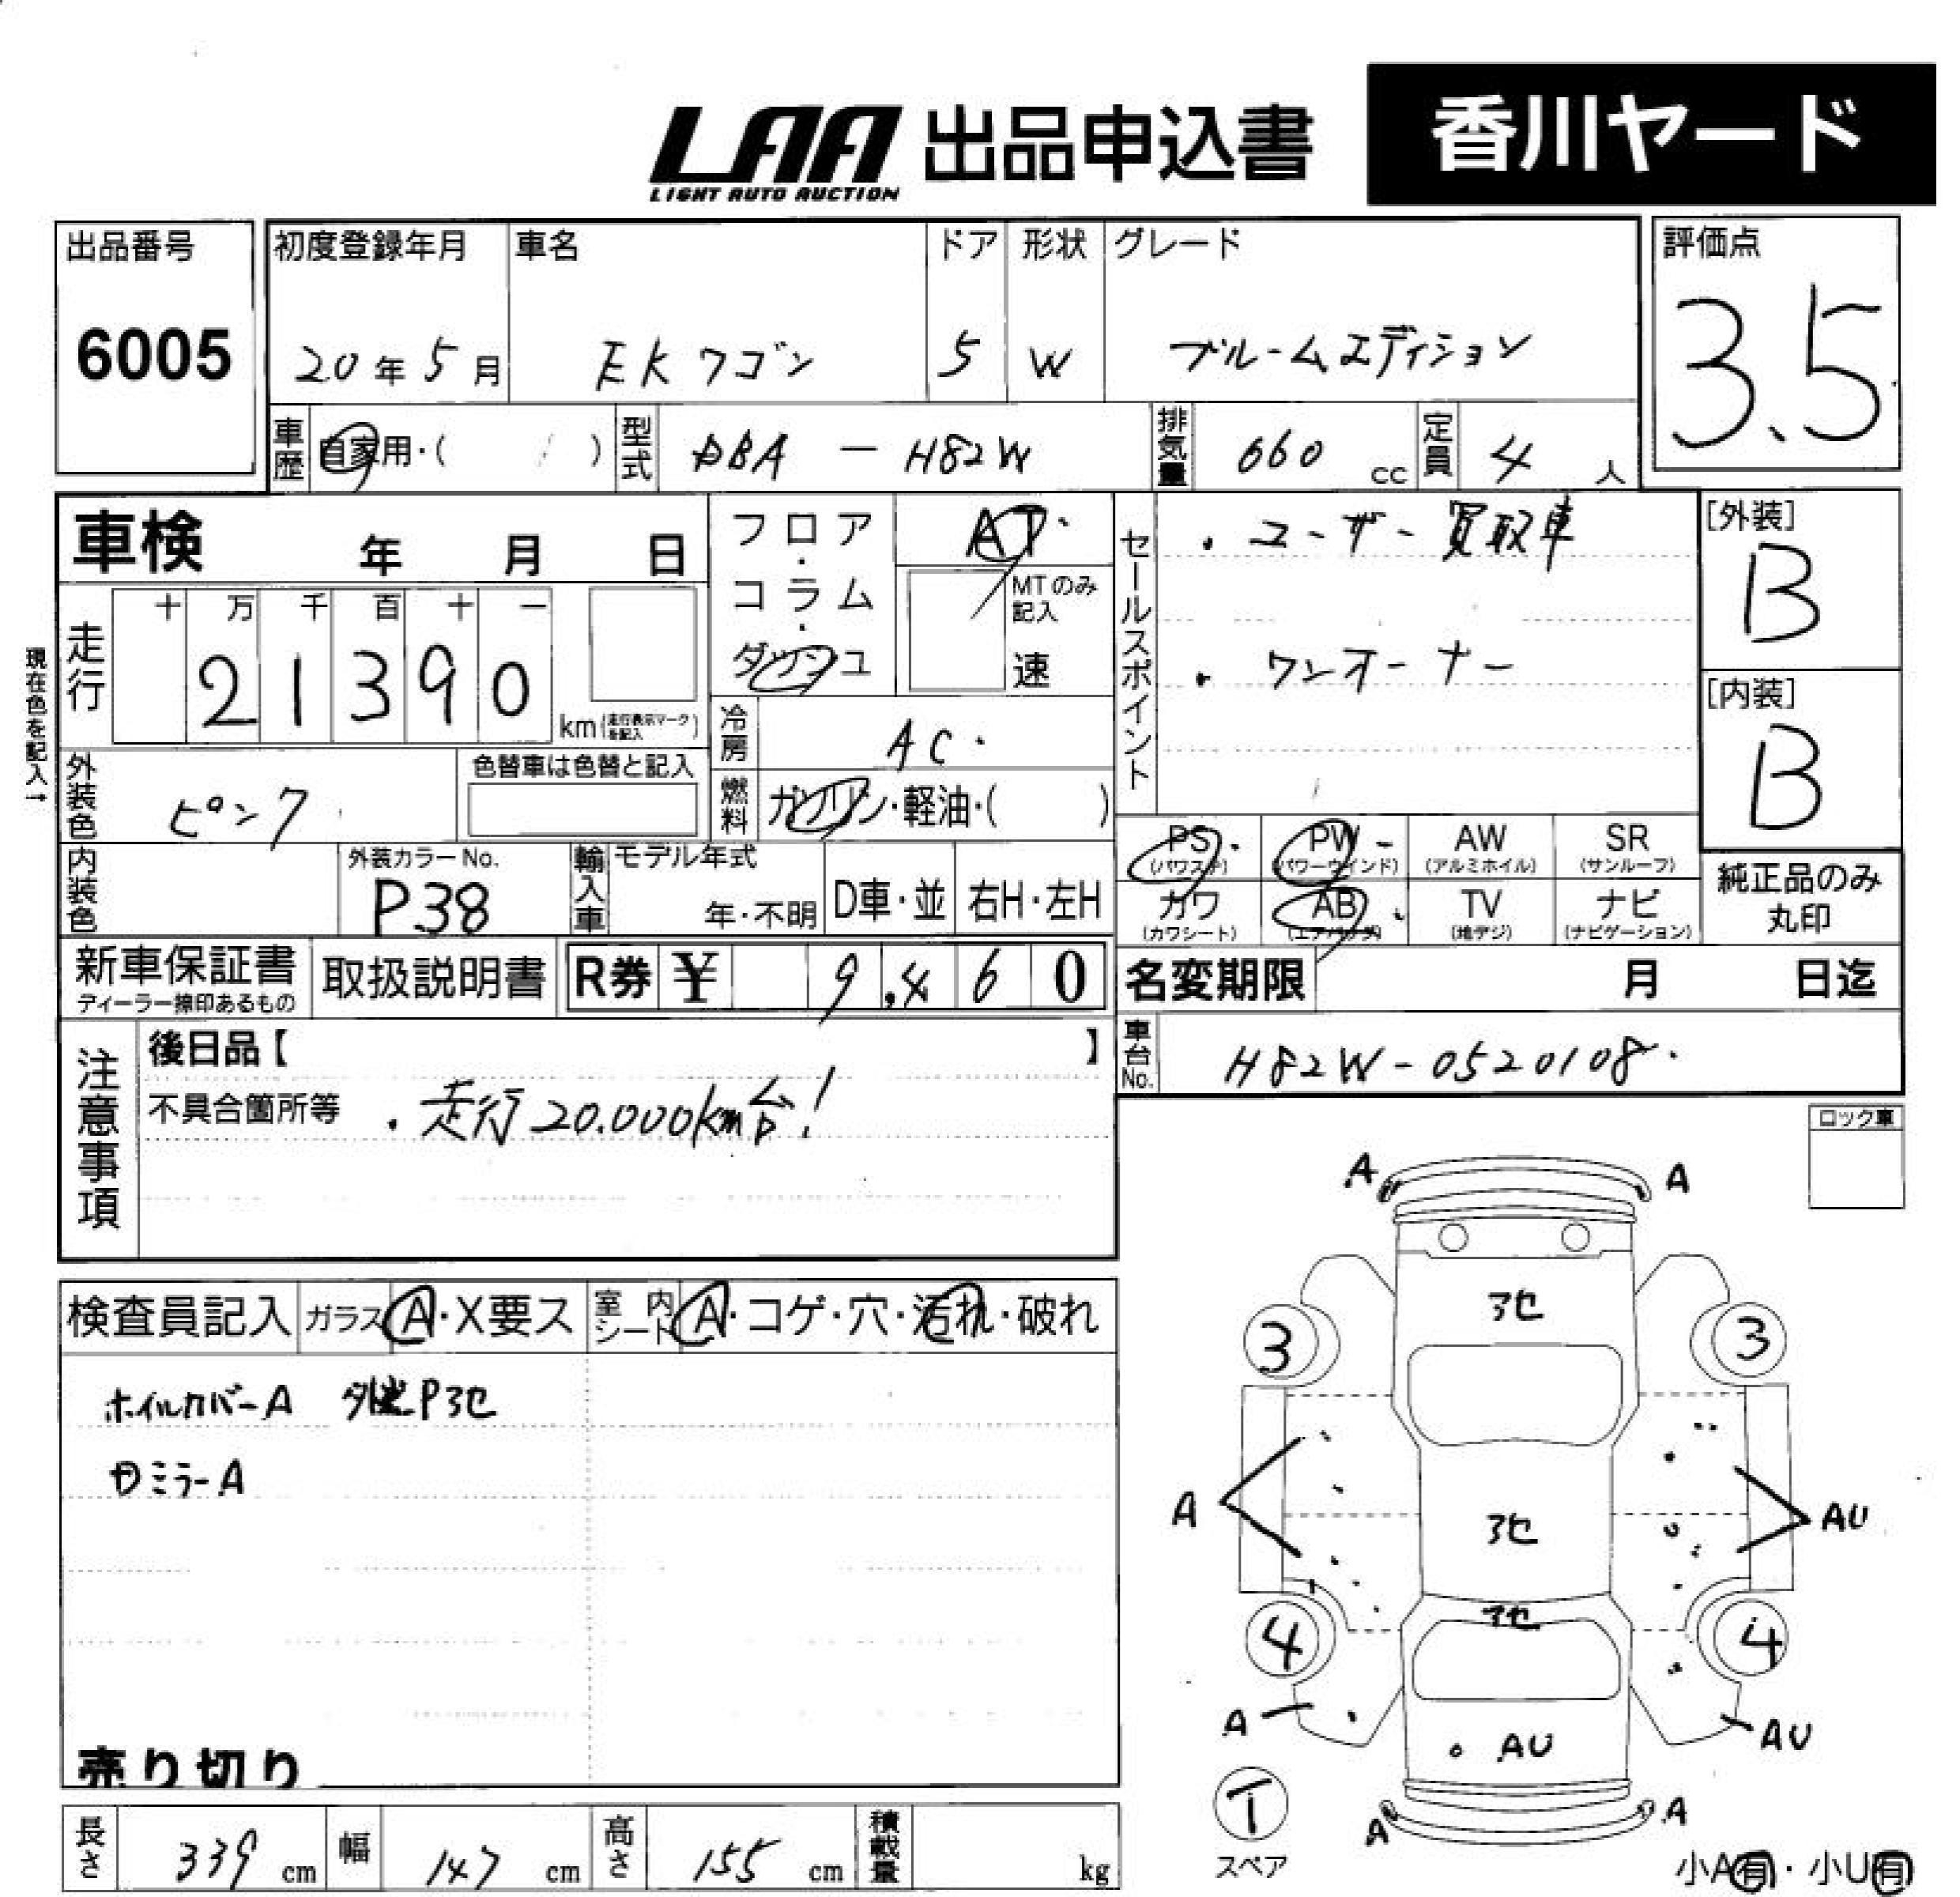 LAA 出品申込書 香川ヤード
LIGHT AUTO AUCTION
出品番号 初度登録年月 車名 ドア 形状 グレード 評価点
6005 20年5月 EKワゴン 5 W ブルームエディション 3.5
車歴 自家用・( ) 型式 DBA - H82W 排気量 660 cc 定員 4 人
車検 年 月 日
フロア・コラム・ダッシュ AT
MTのみ記入
速
セールスポイント
・ユーザー買取車
・ワンオーナー
[外装]
B
[内装]
B
現在色を記入→
走行 十 万 千 百 十 一
21390 km(走行表示マークを記入)
冷房 AC
外装色 ピンク 色替車は色替と記入
燃料 ガソリン・軽油・( )
PS (パワステ) PW (パワーウインド) AW (アルミホイル) SR (サンルーフ)
カワ (カワシート) AB (エアバッグ) TV (地デジ) ナビ (ナビゲーション)
純正品のみ丸印
内装色 外装カラーNo. P38 輸入車 モデル年式 年・不明 D車・並 右H・左H
新車保証書 ディーラー捺印あるもの 取扱説明書 R券 ¥ 9,460
名変期限 月 日迄
車台No. H82W-0520108
注意事項 後日品【 】
不具合箇所等 ・走行20.000km台!
ロック車
A A
検査員記入 ガラス A・X要ス 室内シート A・コゲ・穴・汚れ・破れ
ホイルカバーA P3セ
ミラーA
3セ
3 3
A 3セ AU
3セ
4 4
A AU AU
売り切り
T
スペア
A A
長さ 339 cm 幅 147 cm 高さ 155 cm 積載量 kg
小A有・小U有